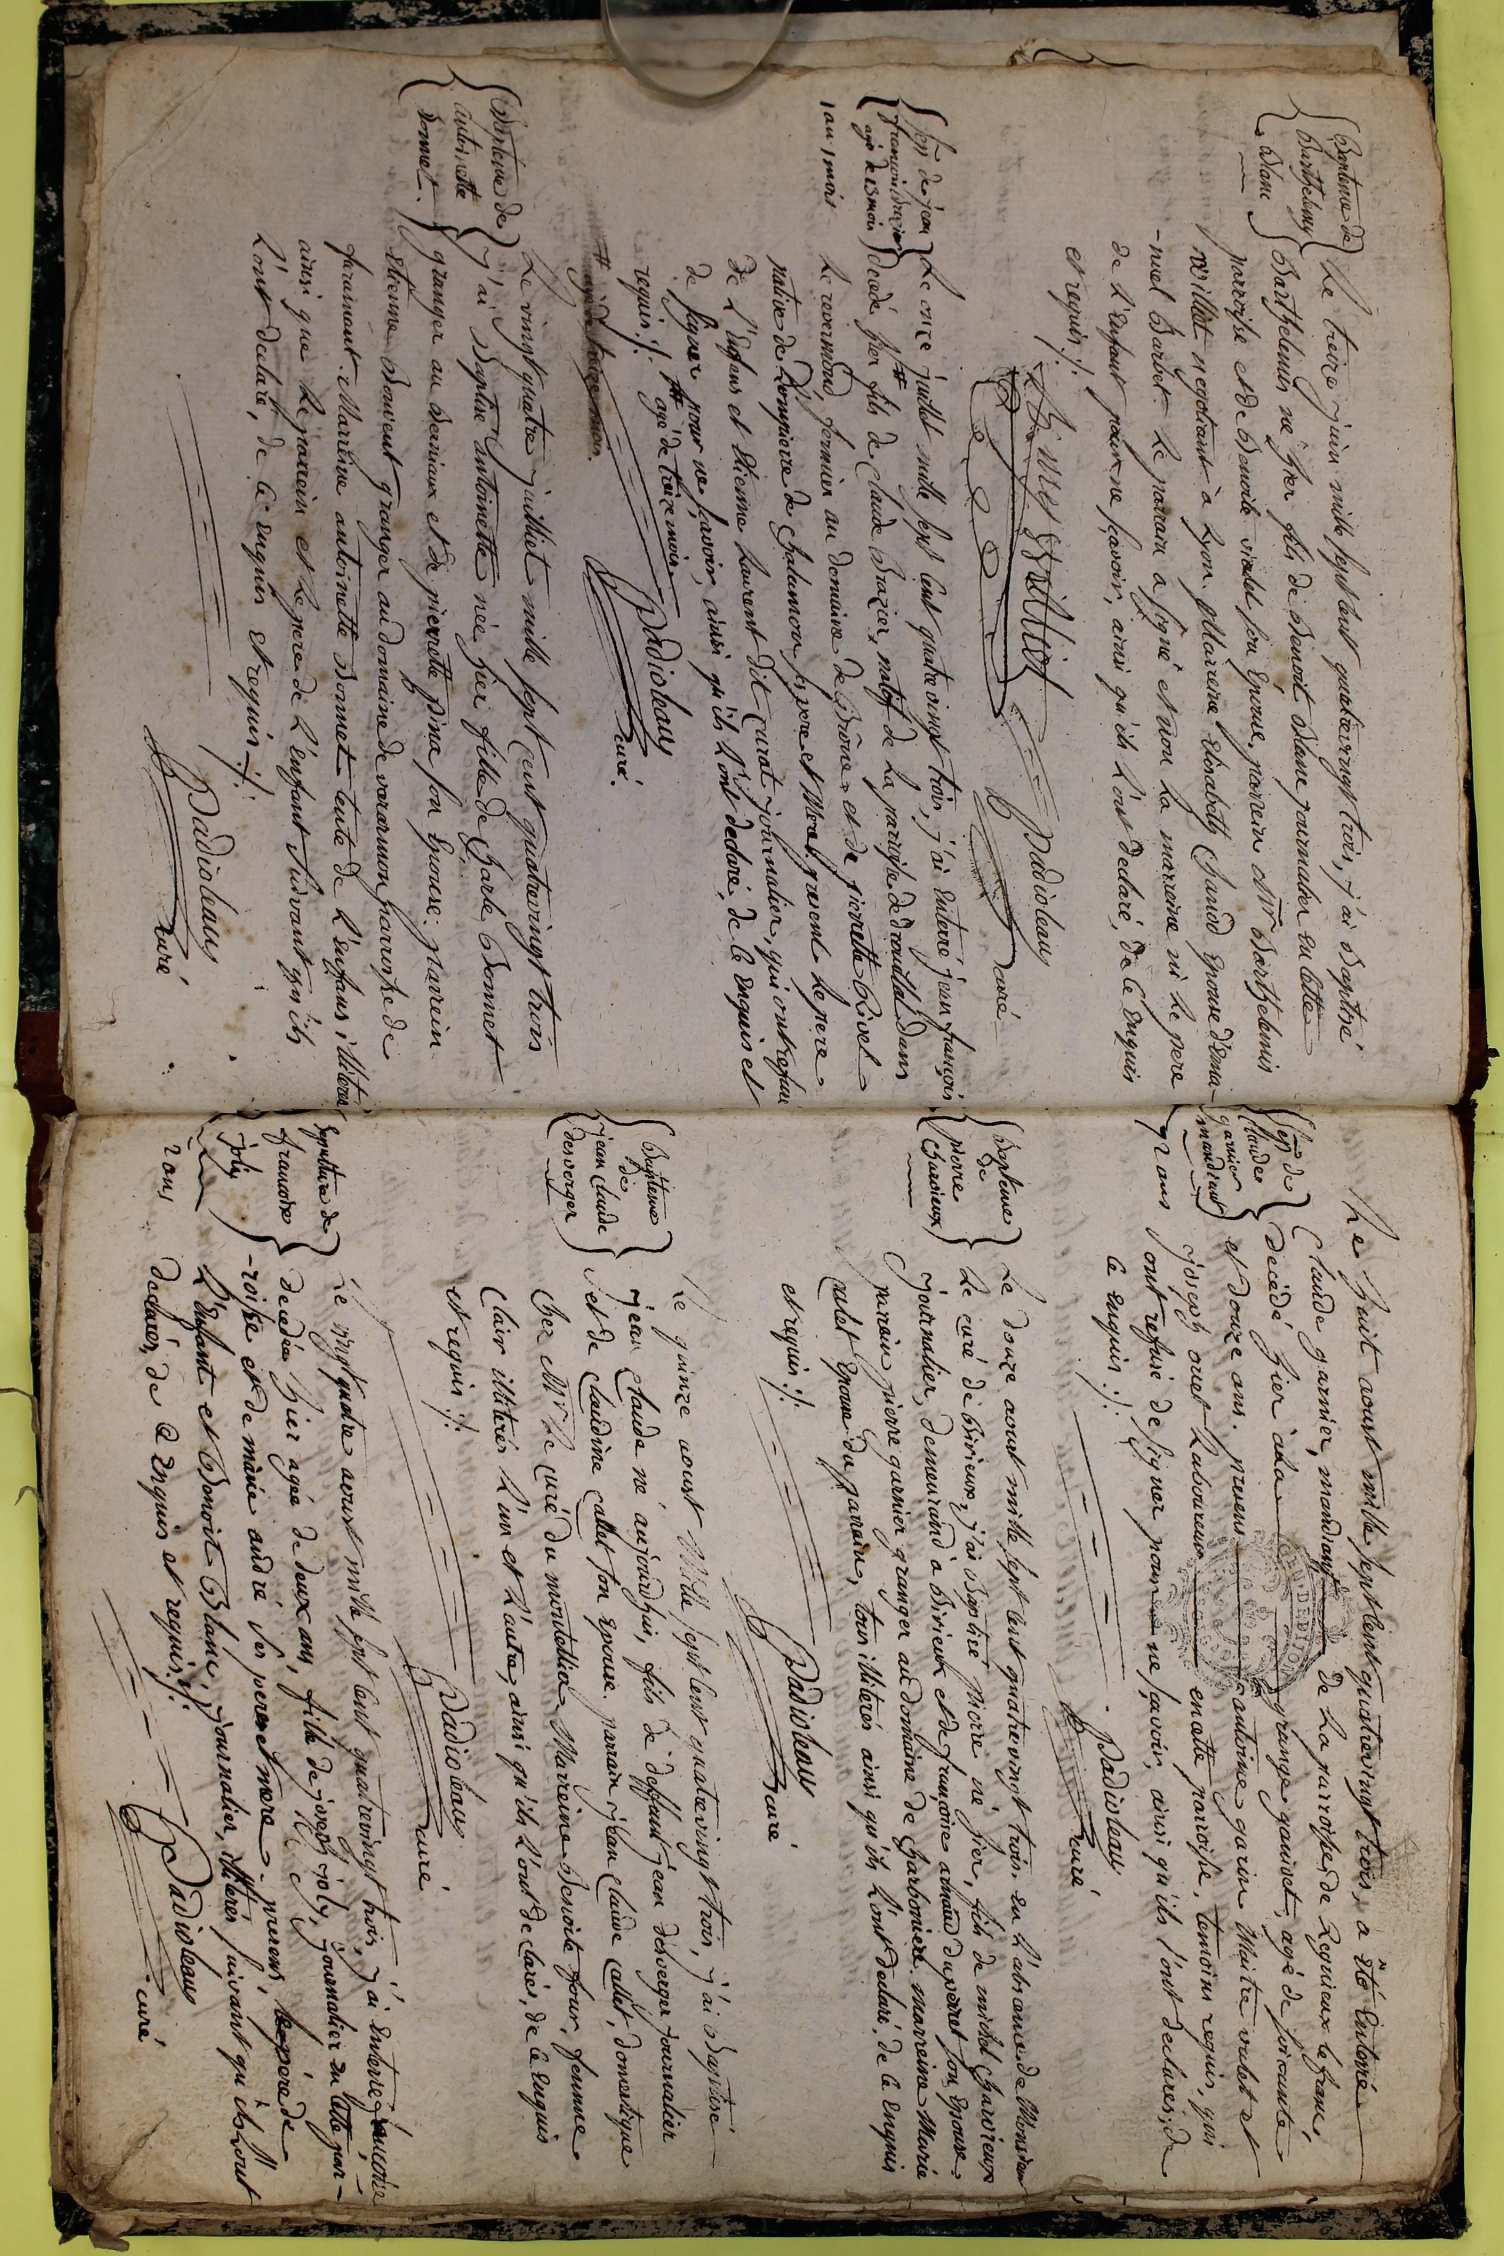 Baptême de
Barthelemy
Blanc
Le treize juin mille sept cent quatrevingt trois, j'ai Baptisé
Barthelemis né hier fils de Benoit Blanc journalier en cette
parroisse et de Benoite violet son Epouse, parrein Mr Barthelemis
Millet negotiant à Lyon. Marreine Elisabeth Chaud Epouse d'Ema-
-nuel Barbet. Le parrain a signé et non la marreine ni le pere
de L'Enfant pour ne sçavoir, ainsi qu'ils L'ont declaré, de ce Enquis
et requis ./.
Padioleau
curé
Sre de jean
françois Brazier
agé de 13 mois
1 an 1 mois
Le onze juillet mille sept cent quatre vingt trois, j'ai Enterré jean françois
decedé hier # fils de Claude Brazier, natif de La parroisse de drouillat dans
Le revermond, fermier au domaine de et de pierrette Rivet
native de Dompierre de Chalamon ses pere et Mere. present Le pere
de L'Enfans et Etienne Laurent dit Curat journalier, qui ont refusé
de signer pour ne sçavoir, ainsi qu'ils L'ont declaré, de ce Enquis et
requis ./. # agé de treize mois
Padioleau
curé.
# agé de treize mois.
Baptême de
antoinette
Bonnet.
Le vingt quatre juilliet mille sept cent quatrevingt trois
j'ai Baptisé antoinette née hier fille de Charle Bonnet
granger au Berniaux et de pierrette pina son Epouse. parrein
Etienne Bouvent granger au domaine de vararmon parroisse de
faramant. Marreine antoinette Bonnet tente de L'Enfans illiterés
ainsi que Le parrein et Le pere de L'Enfant suivant qu'ils
L'ont declaré, de ce Enquis et requis ./.
Padioleau
curé
Sre de
Claude
garnier
mandiant
72 ans
Le huit aoust mille sept cent quatrevingt trois, a été Enterré
Claude garnier, mandiant de La parroisse de Reyrieux le franc,
decédé hier à La grange gauvet, agé de soixante
et douze ans. presens antoine garin Maitre valet et
joseph ouet Laboureur en cette parroisse, temoins requis, qui
ont refusé de signer pour ne sçavoir, ainsi qu'ils l'ont declarés, de
ce Enquis ./.
Padioleau
curé
Baptême
de
pierre
Charvieux
Le douze aoust mille sept cent quatre vingt trois, en L'absence de Monsieur
Le curé de Birieux, j'ai Baptisé Pierre né hier, fils de michel Charvieux
journalier, demeurand à Birieux et de françoise duperret son Epouse.
parrain pierre garnier granger au domaine de Charboniere. marreine Marie
valet Epouse du parrain, tous illiterés ainsi qu'ils L'ont declaré, de ce Enquis
et requis ./.
Padioleau
curé
Baptême
de
jean Claude
desverger
Le quinze aoust Mille sept cent quatrevingt trois, j'ai Baptisé
jean Claude né aujourdhui, fils de deffunt jean desverger journalier
et de Claudine Callet son Epouse. parrain jean Claude Callet, domestique
chez Mr Le curé du montellier Marreine Benoite four, femme
Clair illiterés L'un et L'autre, ainsi qu'ils L'ont declarés, de ce Enquis
et requis ./.
Padioleau
curé
Sepulture de
francoise
joly
2 ans
Le vingt quatre aoust mille sept cent quatrevingt trois, j'ai Enterré francoise
decedée hier agée de deux ans, fille de joseph joly, journalier en cette par-
-roisse et de marie andré ses pere et mere. presens Le pere de
L'Enfant et Benoit Blanc, journalier, illiterés suivant qu'ils L'ont
declarés, de ce Enquis et requis ./.
Padioleau
curé